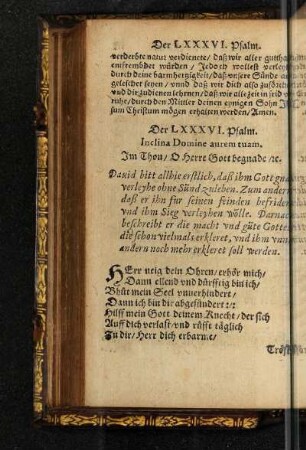 Der LXXXVI. Psalm.
verderbte natur verdienete / daß wir aller gutthaten
entfrembdet würden / Jedoch wöllest verleyhen
durch deine barmhertzigkeit / daß vnsere Sünde
geleschet seyen / vnnd daß wir dich also zufürchten
vnd dir zudienen lehrnen / daß wir alle zeit in
ruhe / durch den Mittler deinen eynigen Sohn
sum Christum mögen erhalten werden / Amen.
Der LXXXVI. Psalm.
Inclina Domine aurem tuam.
Im Thon / O Herre Gott begnade / ꝛc.
Dauid bitt allhie erstlich, daß ihm Gott gnad
verleyhe ohne Sünd zuleben. Zum andern
daß er ihn für seinen feinden befride
vnd ihm Sieg verleyhen wölle. Darnach
beschreibt er die macht vnd güte Gottes
die schon vielmals erkleret, vnd ihm vnn
andern noch mehr erkleret soll werden.
HErr neig dein Ohren / erhör mich /
Dann ellend vnd dürfftig bin ich /
Bhüt mein Seel vnuerhindert /
Dann ich bin dir abgesündert :/:
Hilff mein Gott deinem Knecht / der sich
Auff dich verlast / vnd rüfft täglich
Zu dir / Herr dich erbarme /